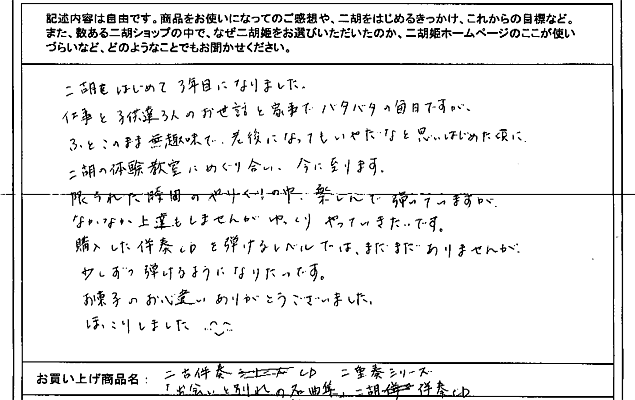 記述内容は自由です。商品をお使いになってのご感想や、二胡をはじめるきっかけ、これからの目標など。
また、数ある二胡ショップの中で、なぜ二胡姫をお選びいただいたのか、二胡姫ホームページのここが使い
づらいなど、どのようなことでもお聞かせください。
二胡をはじめて 3年目になりました。
仕事と子供達3人のお世話と家事でバタバタの毎日ですが、
ふとこのまま無趣味で、老後になってもいやだなと思いはじめた頃に、
二胡の体験教室にめぐり合い、今に至ります。
限られた時間のやりくりの中、楽しんで弾いていますが、
なかなか上達もしませんが ゆっくり やっていきたいです。
購入した伴奏CDを弾けるレベルでは、まだまだありませんが、
少しずつ弾けるようになりたいです。
お菓子のお心遣い ありがとうございました。
ほっこりしました
お買い上げ商品名：二古伴奏 CD 二重奏シリーズ
「出会いと別れの名曲集」二胡 伴奏CD